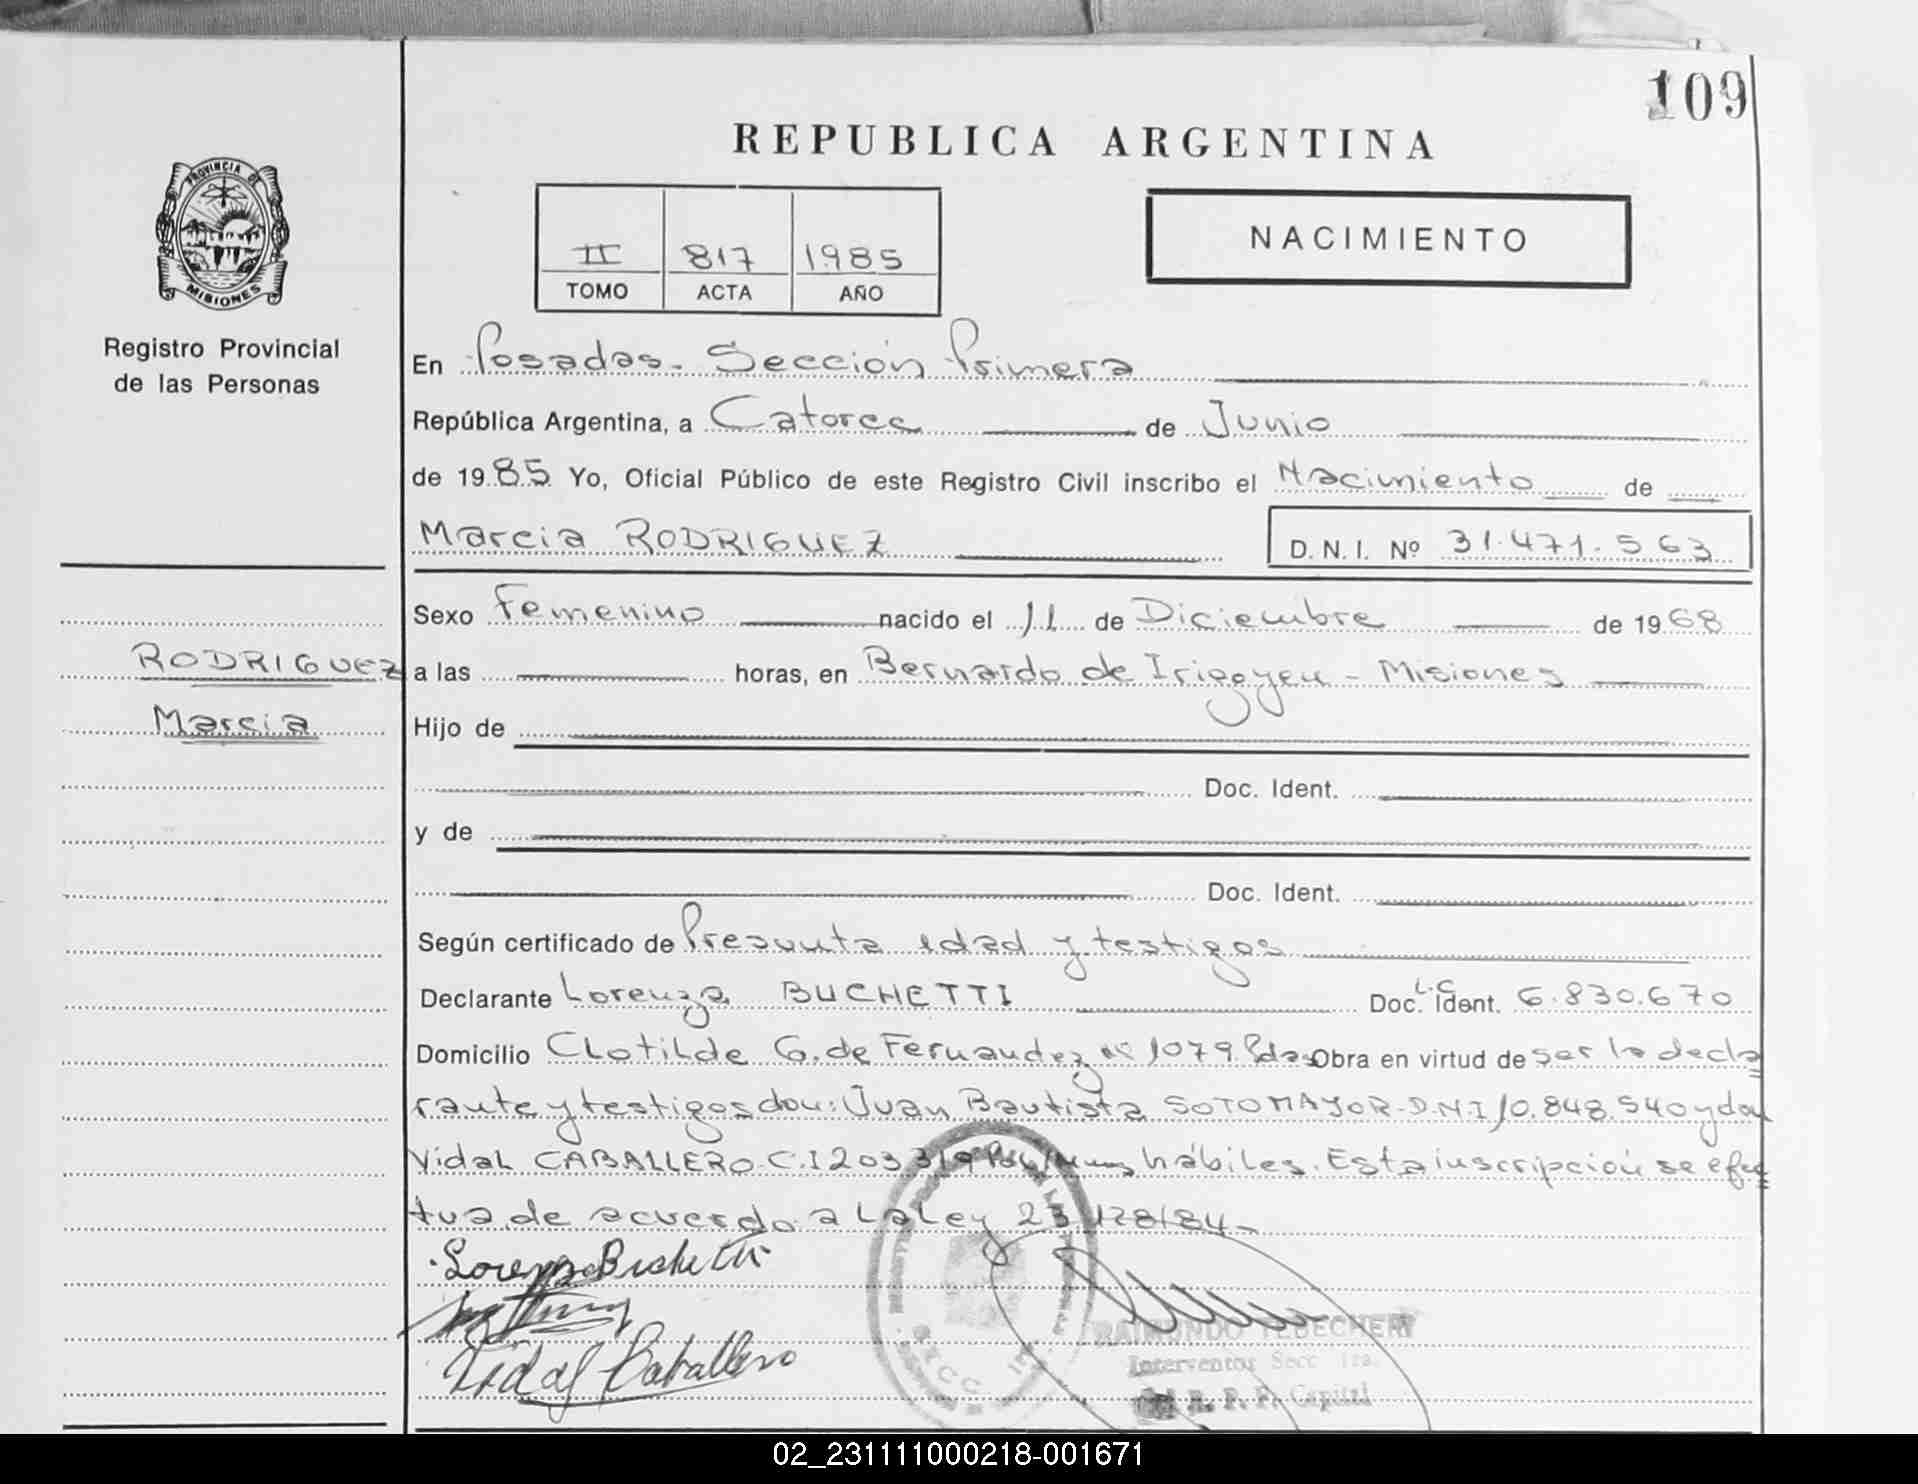 109
REPUBLICA ARGENTINA
PROVINCIA DE
MISIONES
Registro Provincial
de las Personas
II 817 1985
TOMO ACTA AÑO
NACIMIENTO
En Posadas - Sección Primera
República Argentina, a Catorce de Junio
de 1985 Yo, Oficial Público de este Registro Civil inscribo el Nacimiento de
Marcia RODRIGUEZ D.N.I. Nº 31.471.563
Sexo Femenino nacido el 11 de Diciembre de 1968
RODRIGUEZ
Marcia
a las horas, en Bernardo de Irigoyen - Misiones
Hijo de
Doc. Ident.
y de
Doc. Ident.
Según certificado de Presunta edad y testigos
Declarante Lorenza BUCHETTI Doc. Ident. L.C 6.830.670
Domicilio Clotilde G. de Fernandez Nº 1079 Pdas Obra en virtud de ser la decla
rante y testigos don: Juan Bautista SOTOMAYOR - D.N.I 10.848.540 y don
Vidal CABALLERO - C.I 203319 hábiles. Esta inscripción se efec
tua de acuerdo a la Ley 23.128/84-
Vidal Caballero
RAIMUNDO TEBECHERY
Interventor Secc. 1ra.
R. P. P. Capital
02_231111000218-001671